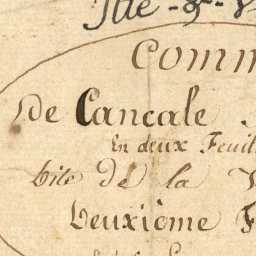 Ille - & - V
COMM
De Cancale
En deux Feuil
bite De la V
Deuxième F